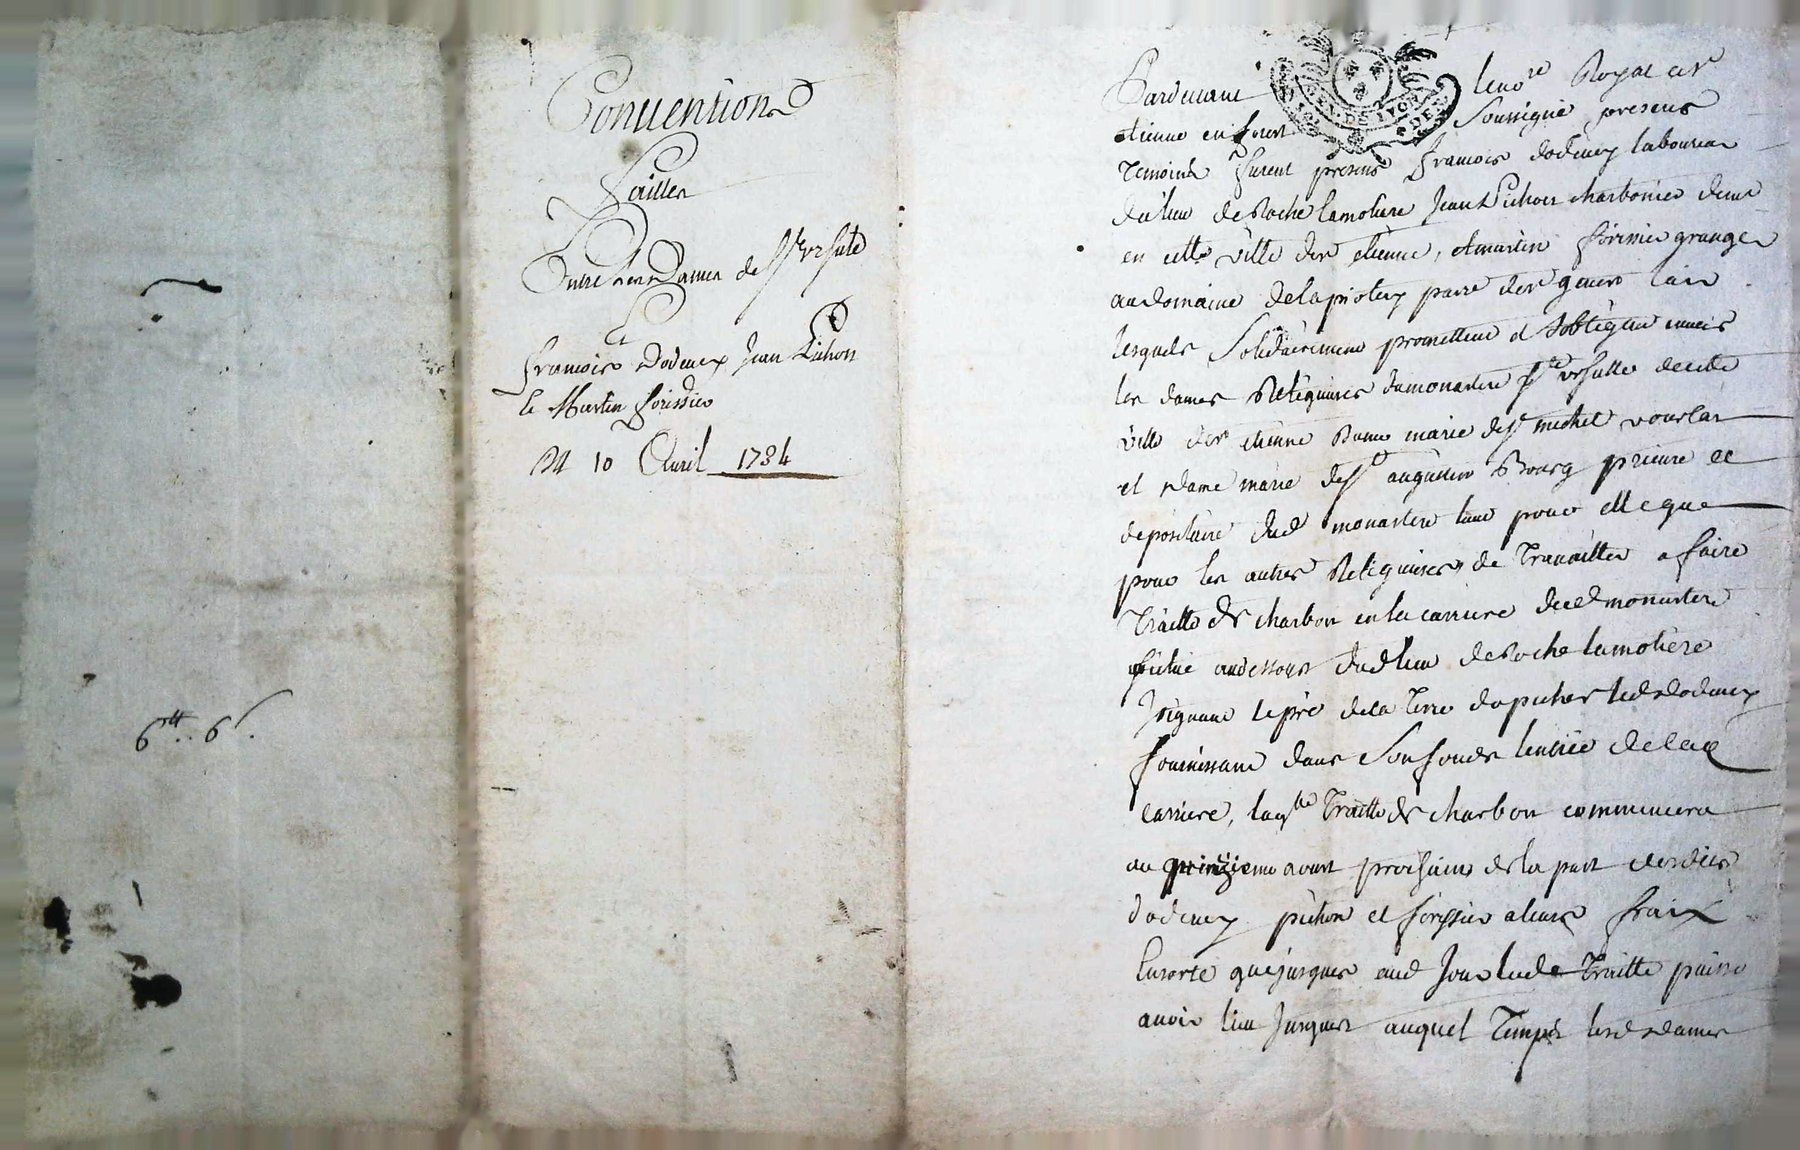 6ᵗᵗ.. 6ˢ.
Conventions
Faittes
Entre les Dames de Ste Ursule
Et
francois Dodeux Jean Pichon
Et Martin forissier
Du 10 Avril 1784
GEN. DE LYON
Pardevant le nore Royal a st
etienne en forest soussigné presens
Temoins furent presens francois dodeux laboureur
du lieu de Roche la moliere Jean Pichon charbonier demt
en cette ville de st etienne, et martin forissier granger
au domaine de la pioterx parre de st genest lair
lesquels solidairement promettent et sobligent envers
les dames Religieuses du monastere ste ursulle de cette
ville de st etienne Dame marie de st michel vourlat
et dame marie de st augustin Bourg prieure et
depositaire dud monastere tant pour elle que
pour les autres Religieuses de Travailler a faire
Traitte de charbon en la carriere dud monastere
situé audessous dud lieu de Roche la moliere
Joignant le pré de la Terre du pichet led dodeux
fournissant dans son fonds lentrée de lad
carriere, laqlle Traitte de charbon commencera
au quinzieme aoust prochain de la part desdits
dodeux pichon et forissier a leurs fraix
Ensorte que jusques aud Jour lade Traitte puisse
avoir lieu Jusques auquel Temps lesd dames